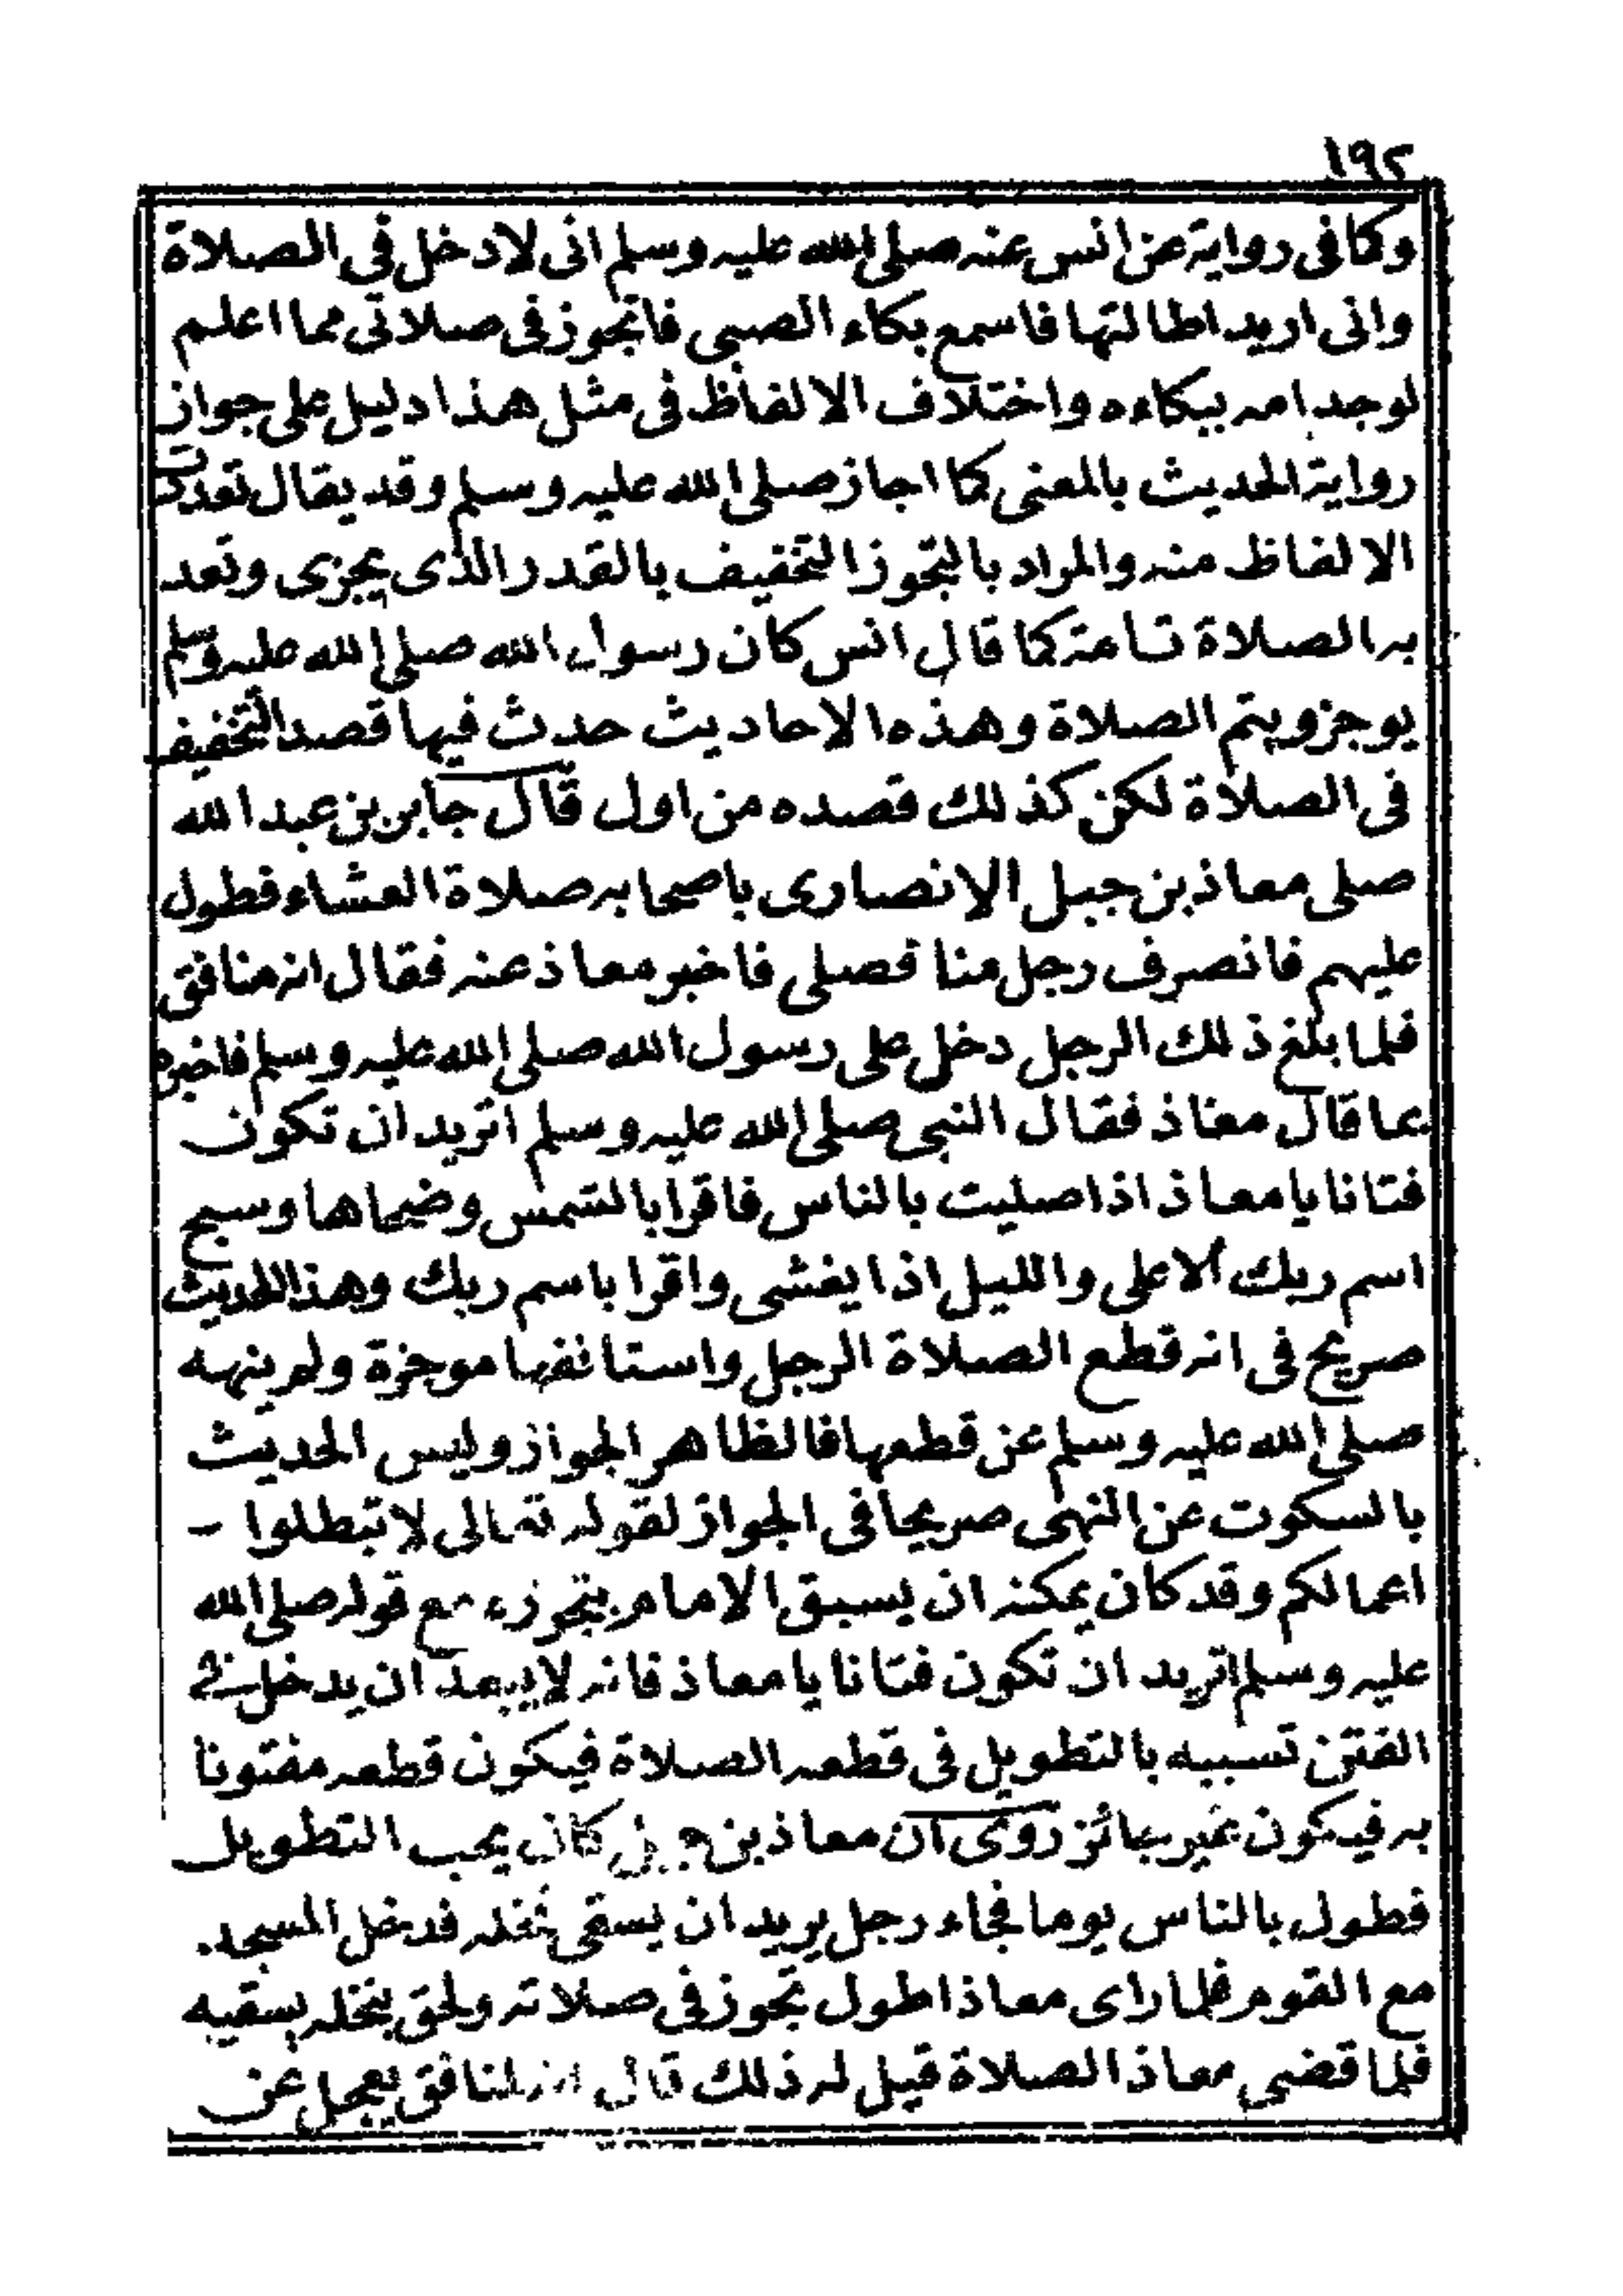 ١٩٢
وكما فى رواية عن انس عنه صلى الله عليه وسلم انى لادخل فى الصلاة
وانى اريد اطالتها فاسمع بكاء الصبى فاتجوز فى صلاتى مما اعلم
لوجد امه ببكاءه واختلاف الالفاظ فى مثل هذا دليل على جواز
رواية الحديث بالمعنى كما اجاز صلى الله عليه وسلم وقد يقال تعددت
الالفاظ منه والمراد بالتجوز التخفيف بالقدر الذى يجزى وتعد
به الصلاة تامة كما قال انس كان رسول الله صلى الله عليه وسلم
يوجز ويتم الصلاة وهذه الاحاديث حدث فيها قصد التخفيف
فى الصلاة لكن كذلك قصده من اول قال جابر بن عبد الله
صلى معاذ بن جبل الانصارى باصحابه صلاة العشاء فطول
عليهم فانصرف رجل منا فصلى فاخبر معاذ عنه فقال انه منافق
فلما بلغ ذلك الرجل دخل على رسول الله صلى الله عليه وسلم فاخبره
بما قال معاذ فقال النبى صلى الله عليه وسلم اتريد ان تكون
فتانا يا معاذ اذا صليت بالناس فاقرا بالشمس وضحاها وسبح
اسم ربك الاعلى والليل اذا يغشى واقرا باسم ربك وهذا الحديث
صريح فى انه قطع الصلاة الرجل واستانفها موجزة ولم ينهه
صلى الله عليه وسلم عن قطعها فالظاهر الجواز وليس الحديث
بالسكوت عن النهى صريحا فى الجواز لقوله تعالى لا تبطلوا -
اعمالكم وقد كان يمكنه ان يسبق الامام بتجوزه مع قوله صلى الله
عليه وسلم اتريد ان تكون فتانا يا معاذ فانه لا يبعد ان يدخل فى
الفتن تسببه بالتطويل فى قطعه الصلاة فيكون قطعه مفتونا
به فيكون غير جائز روى ان معاذ بن جبل كان يحب التطويل
فطول بالناس يوما فجاء رجل يريد ان يسقى نخله فدخل المسجد
مع القوم فلما راى معاذا طول تجوز فى صلاته ولحق بنخله يسقيه
فلما قضى معاذ الصلاة قيل له ذلك قال انه لمنافق يعجل عن